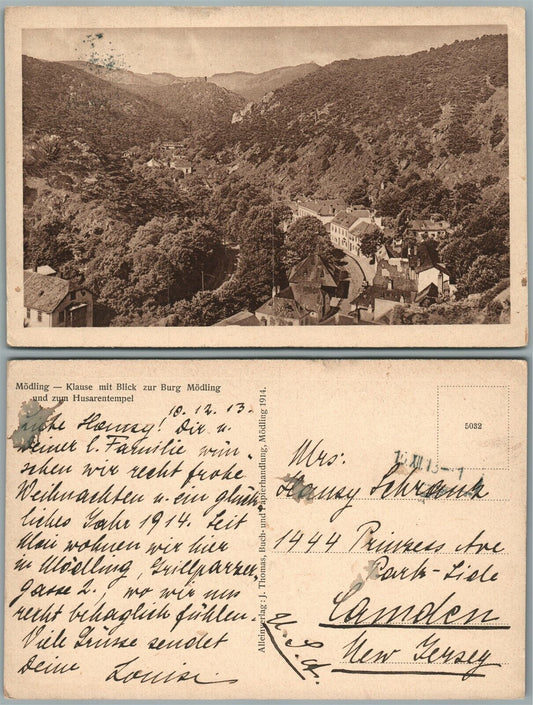 Mödling — Klause mit Blick zur Burg Mödling
und zum Husarentempel
10.12.13.
Hansy! Dir u.
Deiner l. Familie wün-
schen wir recht frohe
Weihnachten u. ein glück-
liches Jahr 1914. Seit
Mai wohnen wir hier
in Mödling, Grillparzer-
gasse 2., wo wir uns
recht behaglich fühlen.
Viele Grüsse sendet
Deine Louise.
Alleinverlag: J. Thomas, Buch- und Papierhandlung, Mödling 1914.
5032
XII 13
Mrs:
Hansy Schrank
1444 Prinzess Ave
Park-Side
Camden
New Jersey
U. S. A.